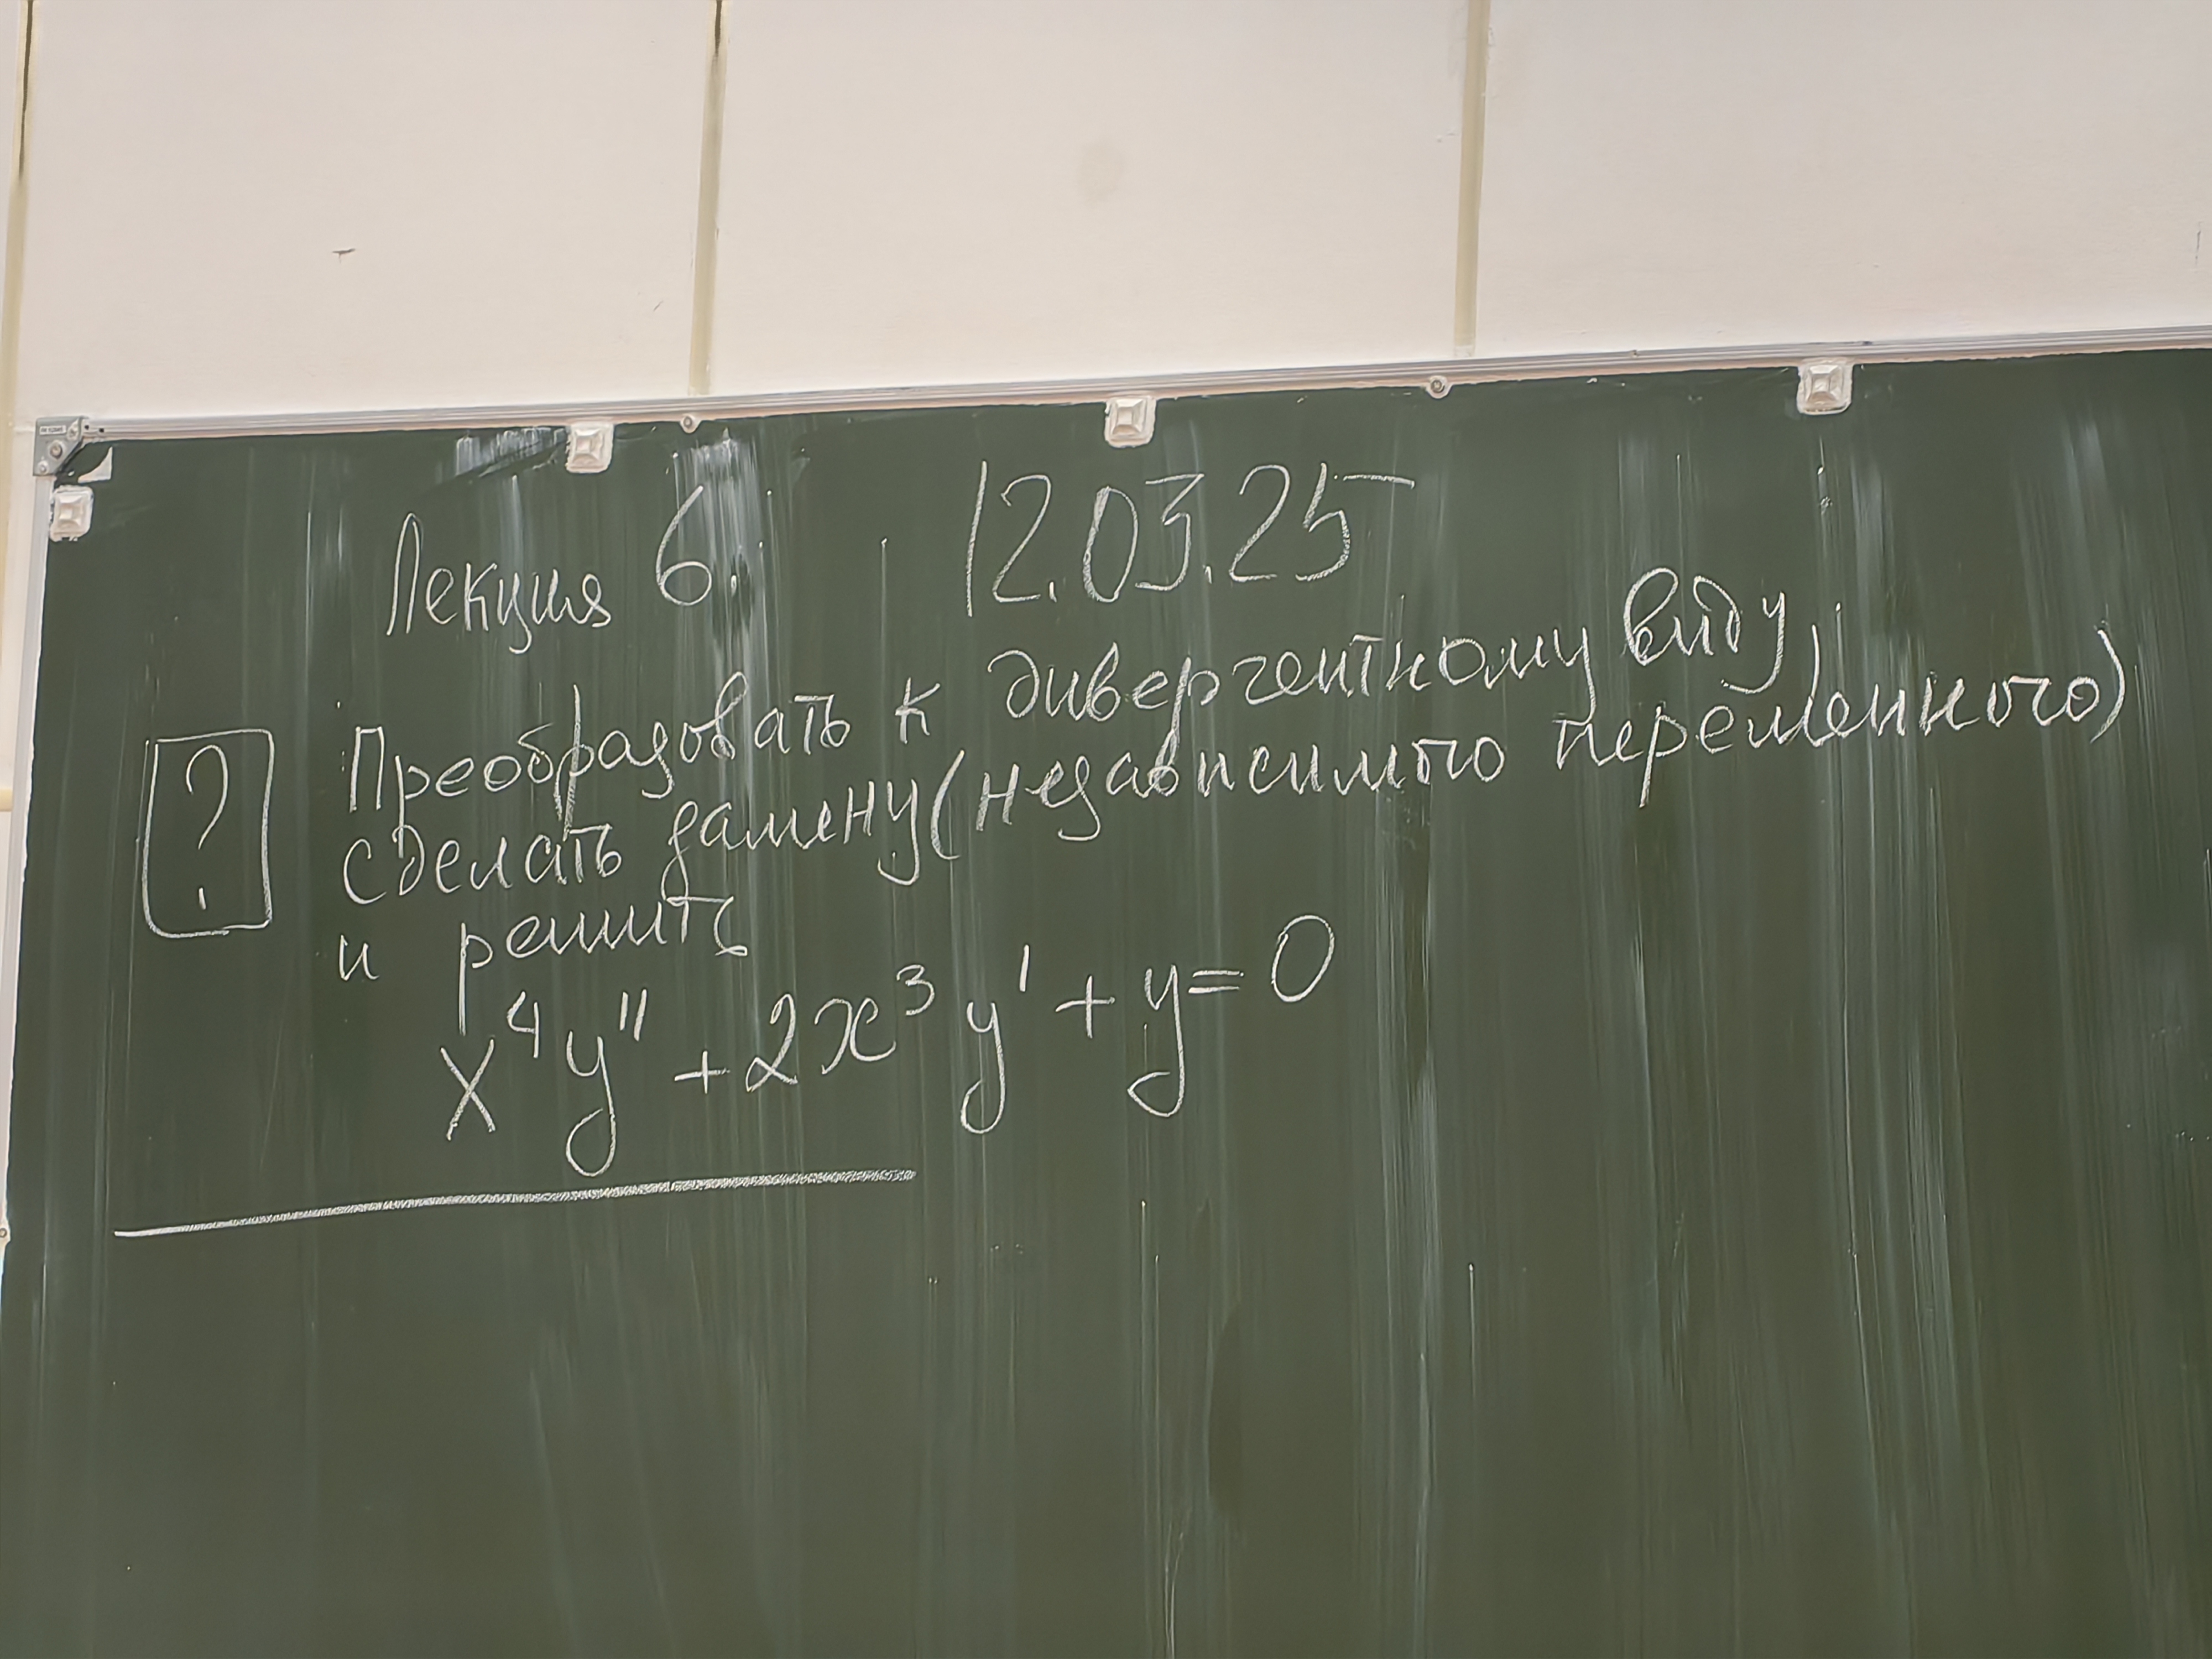 Лекция 6. 12.03.25
? Преобразовать к дивергентному виду,
сделать замену (независимого переменного)
и решить
x⁴y'' + 2x³y' + y = 0